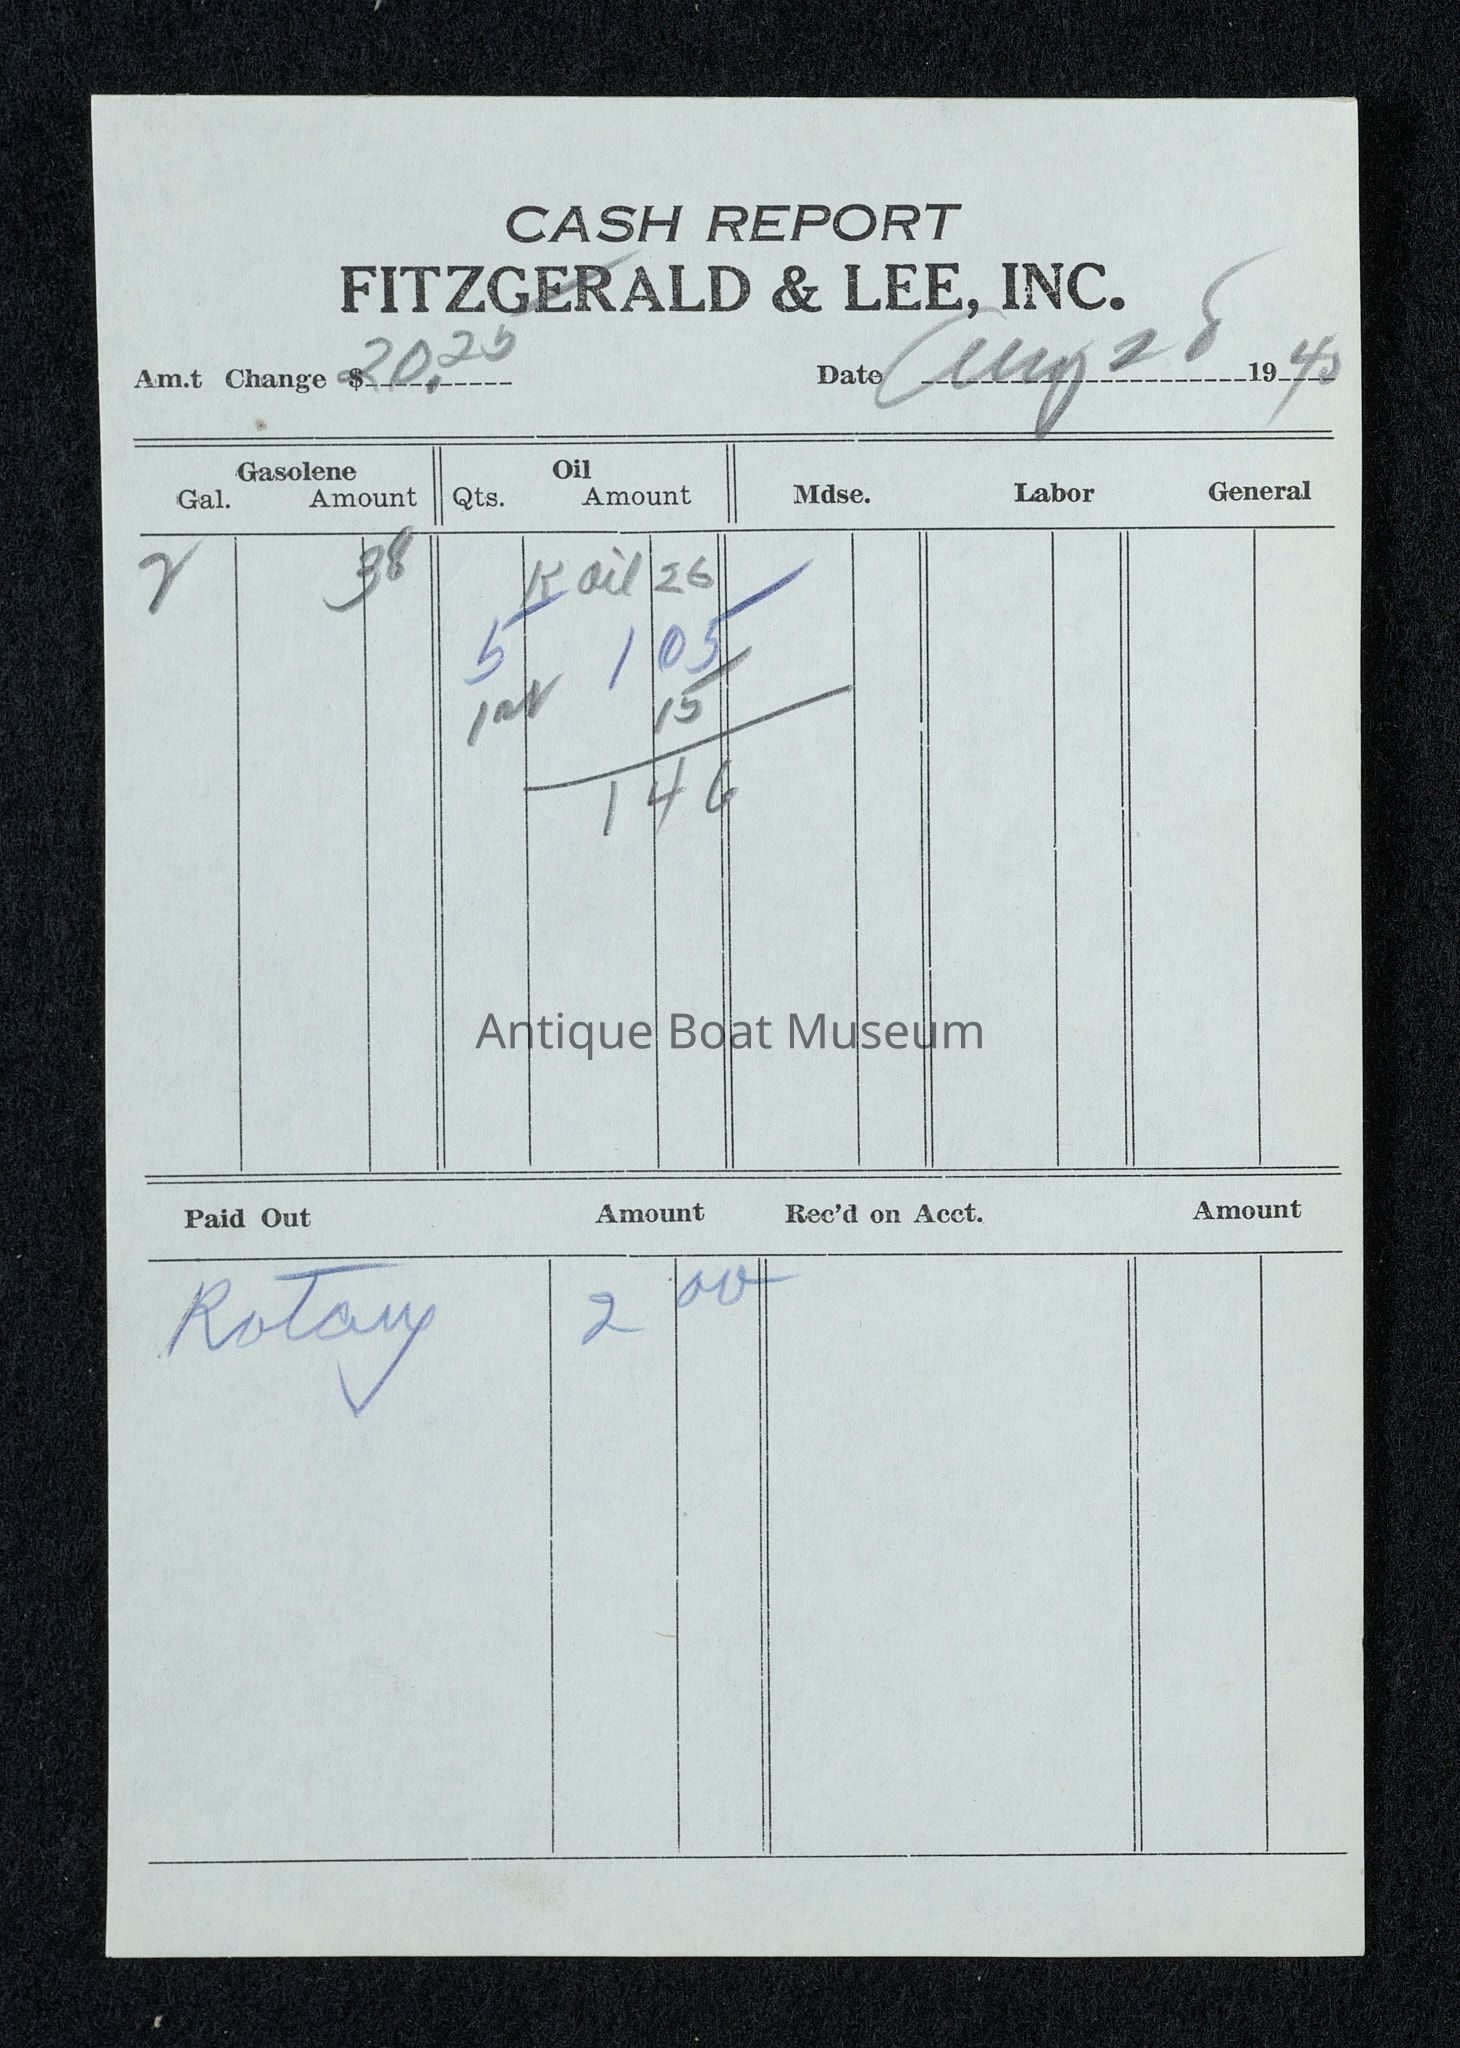 CASH REPORT
FITZGERALD & LEE, INC.
Am.t Change $ 20.25 Date Aug 28 19 43
Gasolene Oil
Gal. Amount Qts. Amount Mdse. Labor General
2 38 K oil 26
5 1 05
15
1 46
Antique Boat Museum
Paid Out Amount Rec'd on Acct. Amount
Rotary 2 00